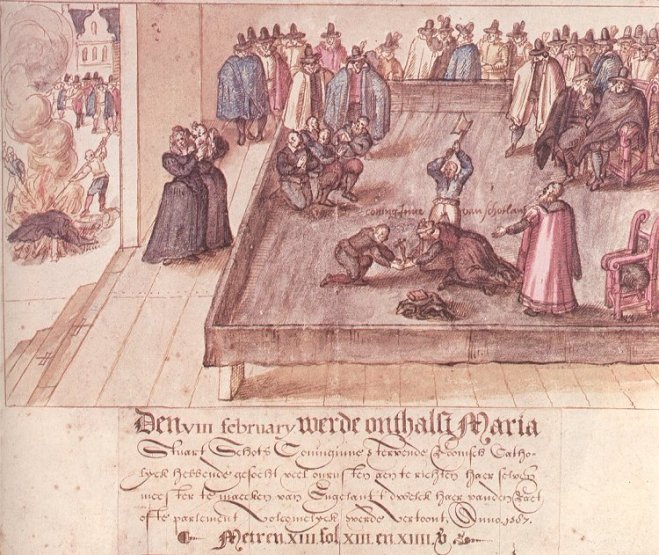 coninginne van schotlan
Den VIII february werde onthalst Maria
Stuart Schots Coninginne stervende Roomsch Catho-
lyck hebbende gesocht veel onrusten aen te richten haer selven
meester te maecken van Engelant t'welck haer vanden Raet
ofte parlement volcomelyck werde vertoont. Anno 1587.
Metren XIII sol. XIII. en XIIII. b.